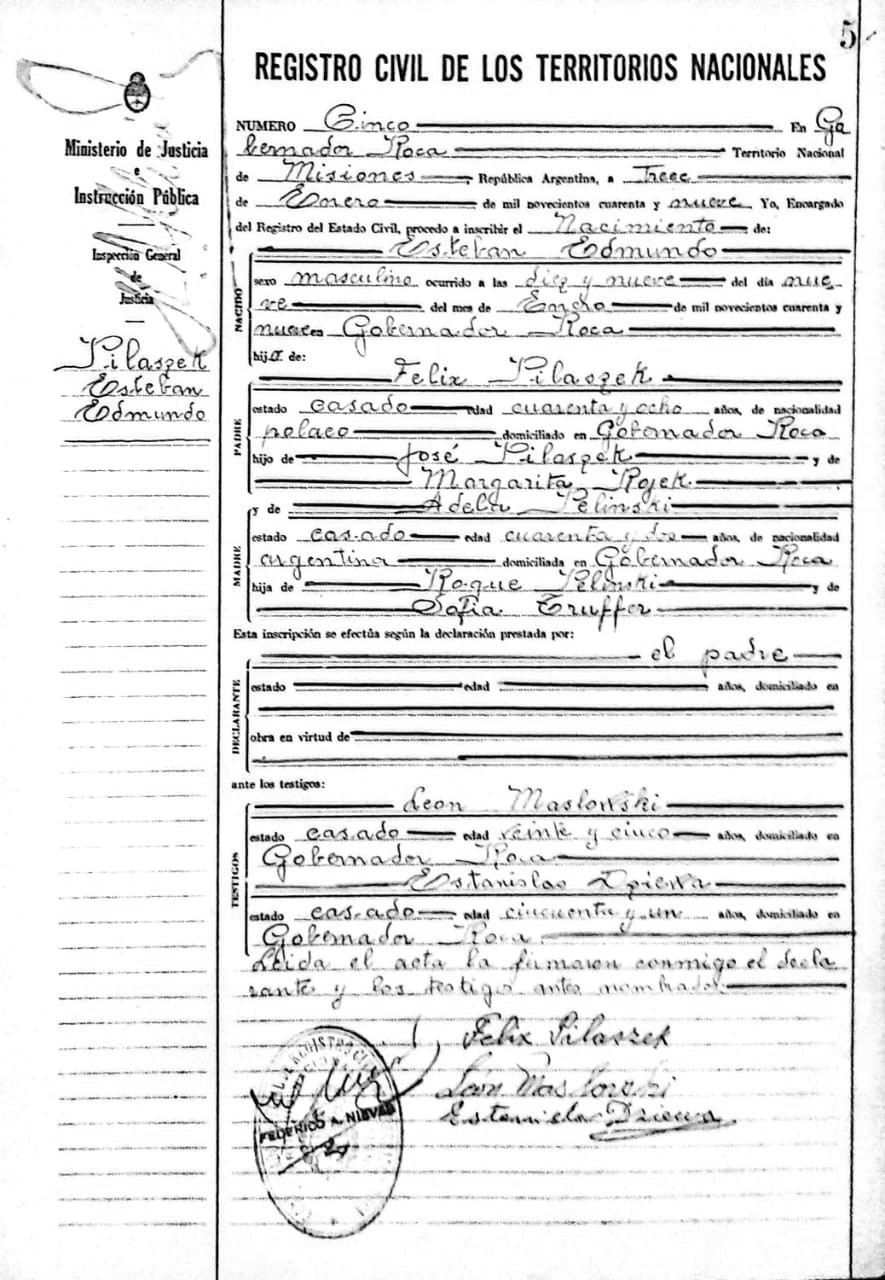 5
REGISTRO CIVIL DE LOS TERRITORIOS NACIONALES
Ministerio de Justicia
e
Instrucción Pública
Inspección General
de
Justicia
Pilaszek
Esteban
Edmundo
NUMERO Cinco En Go
bernador Roca Territorio Nacional
de Misiones, República Argentina, a Trece
de Enero de mil novecientos cuarenta y nueve Yo, Encargado
del Registro del Estado Civil, procedo a inscribir el Nacimiento de:
NACIDO
Esteban Edmundo
sexo masculino ocurrido a las diez y nueve del día nue
ve del mes de Enero de mil novecientos cuarenta y
nueve en Gobernador Roca
hijo de:
PADRE
Felix Pilaszek
estado casado edad cuarenta y ocho años, de nacionalidad
polaco domiciliado en Gobernador Roca
hijo de José Pilaszek y de
Margarita Rojek
MADRE
y de Adela Pelinski
estado casado edad cuarenta y dos años, de nacionalidad
argentina domiciliada en Gobernador Roca
hija de Roque Pelinski y de
Sofia Truffer
Esta inscripción se efectúa según la declaración prestada por:
DECLARANTE
el padre
estado edad años, domiciliado en
obra en virtud de
ante los testigos:
TESTIGOS
Leon Maslowski
estado casado edad veinte y cinco años, domiciliado en
Gobernador Roca
Estanislao Dziewa
estado casado edad cincuenta y un años, domiciliado en
Gobernador Roca
Leida el acta la firmaron conmigo el decla
rante y los testigos antes nombrados
Felix Pilaszek
León Maslowski
Estanislao Dziewa
REGISTRO CIVIL
FEDERICO A. NIEVAS